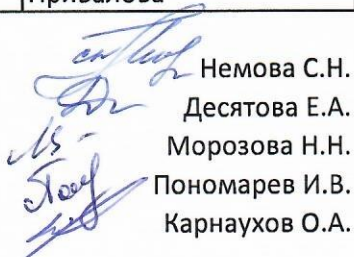 Привалова
Немова С.Н.
Десятова Е.А.
Морозова Н.Н.
Пономарев И.В.
Карнаухов О.А.